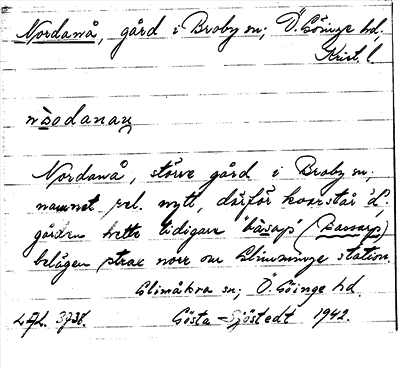 Nordanå, gård i Broby sn; Ö. Göinge hd,
Krist. l.
Nordanå, större gård i Broby sn,
namnet rel. nytt, därför kvarstår 'd',
gården hette tidigare "båsap" (Bassarp)
belägen strax norr om Glimminge station.
Glimåkra sn; Ö. Göinge hd.
L.A.L. 3738. Gösta Sjöstedt 1942.